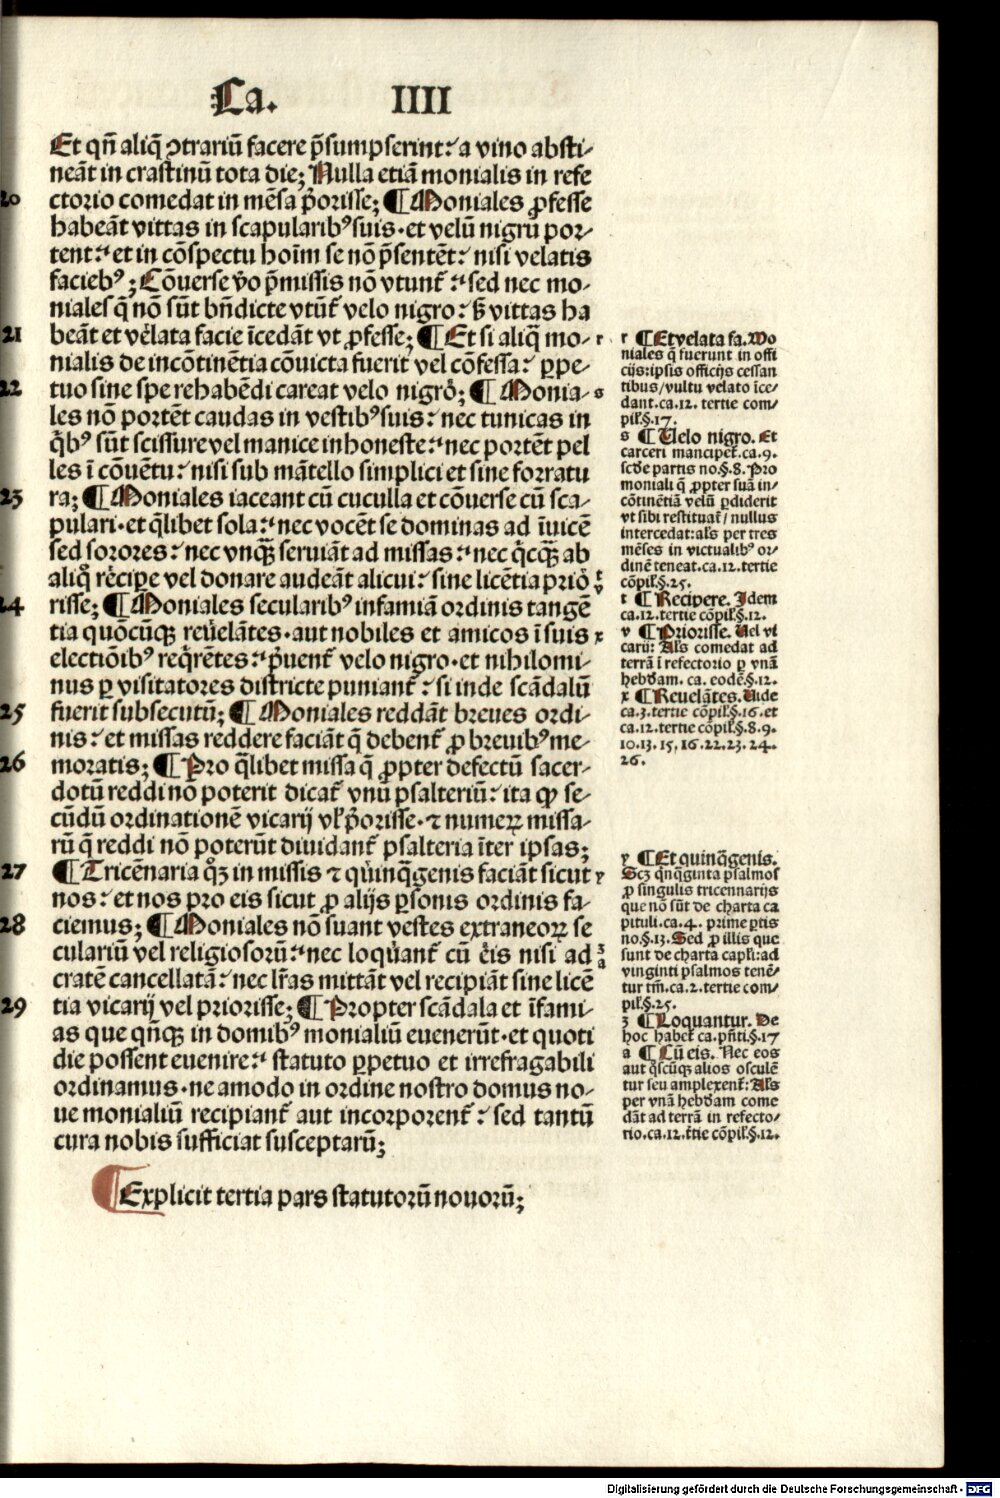 Ca. IIII
Et qñ aliq̃ ꝯtrariũ facere p̃sumpserint: a vino absti-
neãt in crastinũ tota die; Nulla etiã monialis in refe
20 ctorio comedat in mẽsa p̃orisse; ¶ Moniales ꝓfesse
habeãt vittas in scapularibꝰ suis. et velũ nigrũ por-
tent: et in cõspectu hoĩm se nõ p̃sentẽt: nisi velatis
faciebꝰ; Cõuerse v̊o p̃missis nõ vtunt̃: sed nec mo-
niales q̃ nõ sũt bñdicte vtũt̃ velo nigro: s̃ vittas ha
21 beãt et vẽlata facie ĩcedãt vt ꝓfesse; ¶ Et si aliq̃ mo- r
nialis de incõtinẽtia cõuicta fuerit vel cõfessa: ꝑpe-
22 tuo sine spe rehabẽdi careat velo nigrõ; ¶ Monia- s
les nõ portẽt caudas in vestibꝰ suis: nec tunicas in
q̃bꝰ sũt scissure vel manice inhoneste: nec portẽt pel
les ĩ cõuẽtu: nisi sub mãtello simplici et sine forratu
23 ra; ¶ Moniales iaceant cũ cuculla et cõuerse cũ sca-
pulari. et q̃libet sola: nec vocẽt se dominas ad ĩuicẽ
sed sorores: nec vnq̃ꝫ seruiãt ad missas: nec q̃cq̃ꝫ ab
aliq̊ rẽcipe vel donare audeãt alicui: sine licẽtia priõ t
24 risse; ¶ Moniales secularibꝰ infamiã ordinis tangẽ v
tia quõcũqꝫ reuẽlãtes. aut nobiles et amicos ĩ suis x
electiõibꝰ req̃rẽtes: p̃uent̃ velo nigro. et nihilomi-
nus ꝑ visitatores districte puniant̃: si inde scãdalũ
25 fuerit subsecutũ; ¶ Moniales reddãt breues ordi-
nis: et missas reddere faciãt q̃ debent̃ ꝓ breuibꝰ me-
26 moratis; ¶ Pro q̃libet missa q̃ ꝓpter defectũ sacer-
dotũ reddi nõ poterit dicat̃ vnũ psalteriũ: ita ꝙ se-
cũdũ ordinationẽ vicarij vl̃ p̃orisse. ⁊ numeꝝ missa-
rũ q̃ reddi nõ poterũt diuidant̃ psalteria ĩter ipsas;
27 ¶ Tricẽnaria qꝫ in missis ⁊ quinq̃genis faciãt sicut y
nos: et nos pro eis sicut ꝓ alijs ꝑsonis ordinis fa-
28 ciemus; ¶ Moniales nõ suant vestes extraneoꝝ se
culariũ vel religiosorũ: nec loquant̃ cũ eis nisi ad z
cratẽ cancellatã: nec lr̃as mittãt vel recipiãt sine licẽ a
29 tia vicarij vel priorisse; ¶ Propter scãdala et ĩfami-
as que qñqꝫ in domibꝰ monialiũ euenerũt. et quoti
die possent euenire: statuto ꝑpetuo et irrefragabili
ordinamus. ne amodo in ordine nostro domus no-
ue monialiũ recipiant̃ aut incorporent̃: sed tantũ
cura nobis sufficiat susceptarũ;
¶ Explicit tertia pars statutorũ nouorũ;
r ¶ Et velata fa. Mo
niales q̃ fuerunt in offi
cijs: ipsis officijs cessan
tibus/ vultu velato ĩce-
dant. ca. 12. tertie com/
pil̃. §. 17.
s ¶ Uelo nigro. Et
carceri mancipet̃. ca. 9.
scd̃e partis no. §. 8. Pro
moniali q̃ ꝓpter suã in/
cõtinẽtiã velũ ꝑdiderit
vt sibi restituat̃/ nullus
intercedat: al̃s per tres
mẽses in victualibꝰ or-
dinẽ teneat. ca. 12. tertie
cõpil̃. §. 25.
t ¶ Recipere. Idem
ca. 12. tertie cõpil̃. §. 12.
v ¶ Priorisse. Uel vi
carij: Al̃s comedat ad
terrã ĩ refectorio ꝑ vnã
hebd̃am. ca. eodẽ. §. 12.
x ¶ Reuelãtes. Uide
ca. 3. tertie cõpil̃. §. 16. et
ca. 12. tertie cõpil̃. §. 8. 9.
10. 13. 15. 16. 22. 23. 24.
26.
y ¶ Et quinq̃genis.
Scꝫ q̃nq̃ginta psalmos
ꝓ singulis tricennarijs
que nõ sũt de charta ca
pituli. ca. 4. prime ꝑtis
no. §. 13. Sed ꝓ illis que
sunt de charta capl̃i: ad
vinginti psalmos tenẽ-
tur tm̃. ca. 2. tertie com/
pil̃. §. 25.
z ¶ Loquantur. De
hoc habet̃ ca. pñti. §. 17
a ¶ Cũ eis. Nec eos
aut q̃scũqꝫ alios osculẽ
tur seu amplexent̃: Al̃s
per vnã hebd̃am come
dãt ad terrã in refecto/
rio. ca. 12. t̃tie cõpil̃. §. 12.
Digitalisierung gefördert durch die Deutsche Forschungsgemeinschaft - DFG